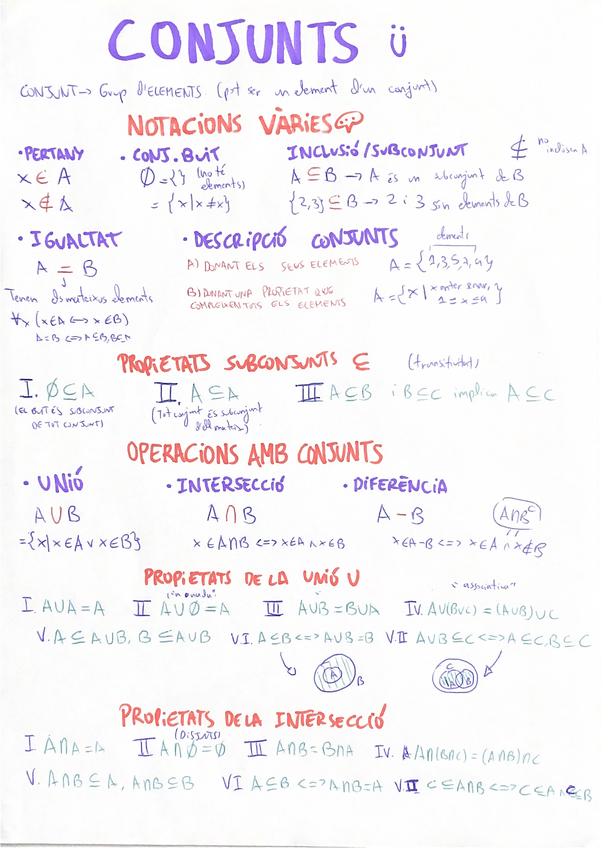 CONJUNTS ü
CONJUNT → Grup d'ELEMENTS (pot ser un element d'un conjunt)
NOTACIONS VÀRIES
• PERTANY
x ∈ A
x ∉ A
• CONJ. BUIT
Ø = {} (no té elements)
= {x | x ≠ x}
INCLUSIÓ/SUBCONJUNT
⊈ no inclisn A
A ⊆ B → A és un subconjunt de B
{2,3} ⊆ B → 2 i 3 són elements de B
• IGUALTAT
A = B
Tenen els mateixos elements
∀x (x∈A ↔ x∈B)
A=B <=> A⊆B, B⊆A
• DESCRIPCIÓ CONJUNTS
A) DONANT ELS SEUS ELEMENTS
elements
B) DONANT UNA PROPIETAT QUE
COMPLEIXEN TOTS ELS ELEMENTS
PROPIETATS SUBCONJUNTS ⊆ (transitivitat)
I. Ø ⊆ A
(EL BUIT ÉS SUBCONJUNT
DE TOT CONJUNT)
II. A ⊆ A
(Tot conjunt és subconjunt
d'ell mateix)
III A ⊆ B i B ⊆ C implica A ⊆ C
OPERACIONS AMB CONJUNTS
• UNIÓ
A ∪ B
= {x | x∈A ∨ x∈B}
• INTERSECCIÓ
A ∩ B
x ∈ A∩B <=> x∈A ∧ x∈B
• DIFERÈNCIA
A - B
A∩Bᶜ
x∈A-B <=> x∈A ∧ x∉B
PROPIETATS DE LA UNIÓ U
"associativa"
I. A∪A = A II A∪Ø = A III A∪B = B∪A IV. A∪(B∪C) = (A∪B)∪C
V. A ⊆ A∪B, B ⊆ A∪B VI. A⊆B <=> A∪B=B VII A∪B ⊆ C <=> A⊆C, B⊆C
A B
C A B
PROPIETATS DE LA INTERSECCIÓ
(DISJUNTS)
I A∩A = A II A∩Ø = Ø III A∩B = B∩A IV. A∩(B∩C) = (A∩B)∩C
V. A∩B ⊆ A, A∩B ⊆ B VI A⊆B <=> A∩B=A VII C⊆A∩B <=> C⊆A ∧ C⊆B